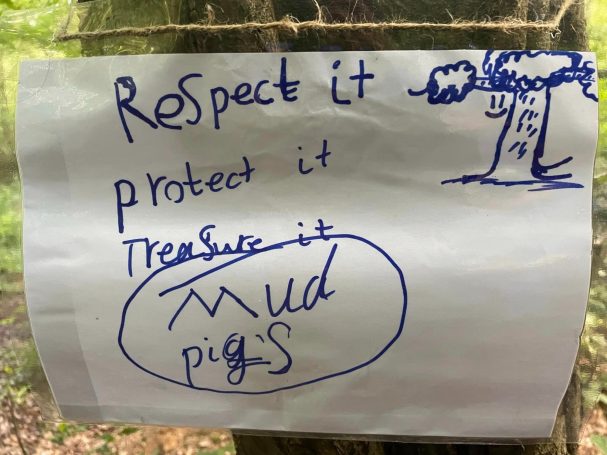 Respect it
protect it
Treasure it
Mud
pig's